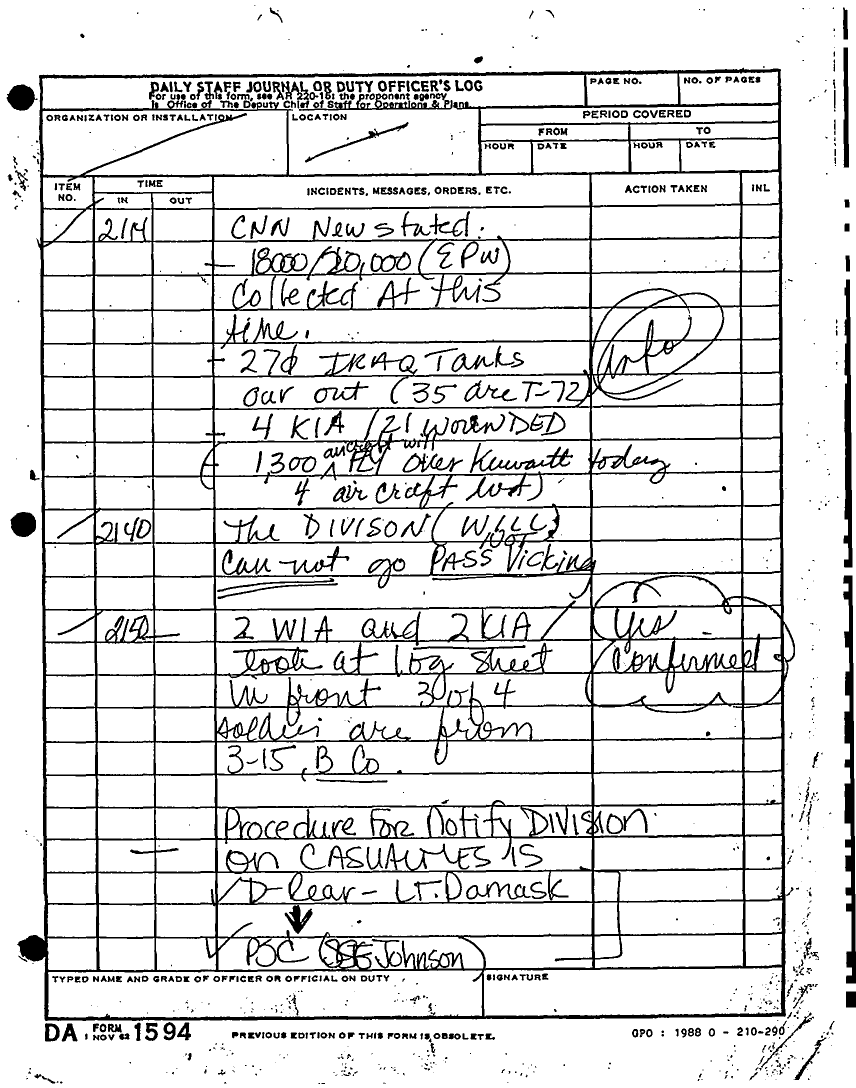 DAILY STAFF JOURNAL OR DUTY OFFICER'S LOG
For use of this form, see AR 220-15; the proponent agency
is Office of The Deputy Chief of Staff for Operations & Plans.
PAGE NO.
NO. OF PAGES
ORGANIZATION OR INSTALLATION
LOCATION
PERIOD COVERED
FROM
TO
HOUR
DATE
HOUR
DATE
ITEM NO.
TIME
IN
OUT
INCIDENTS, MESSAGES, ORDERS, ETC.
ACTION TAKEN
INL
2114
CNN News stated.
- 18000/20,000 (EPW)
Collected At this
time.
- 270 IRAQ Tanks
our out (35 are T-72)
Info
- 4 KIA /21 WOUNDED
(1,300 aircraft will fly over Kuwaitt today
4 air craft lost)
2140
The DIVISON (WILL NOT)
Can-not go PASS Vicking
2150
2 WIA and 2 KIA
Yes
look at log sheet
Confirmed
in front 3 of 4
soldiers are from
3-15, B Co.
Procedure For Notify DIVISION
on CASUALTIES IS
D-Rear - LT. Damask
PSC (SSG Johnson)
TYPED NAME AND GRADE OF OFFICER OR OFFICIAL ON DUTY
SIGNATURE
DA FORM 1 NOV 62 1594
PREVIOUS EDITION OF THIS FORM IS OBSOLETE.
GPO : 1988 O - 210-290